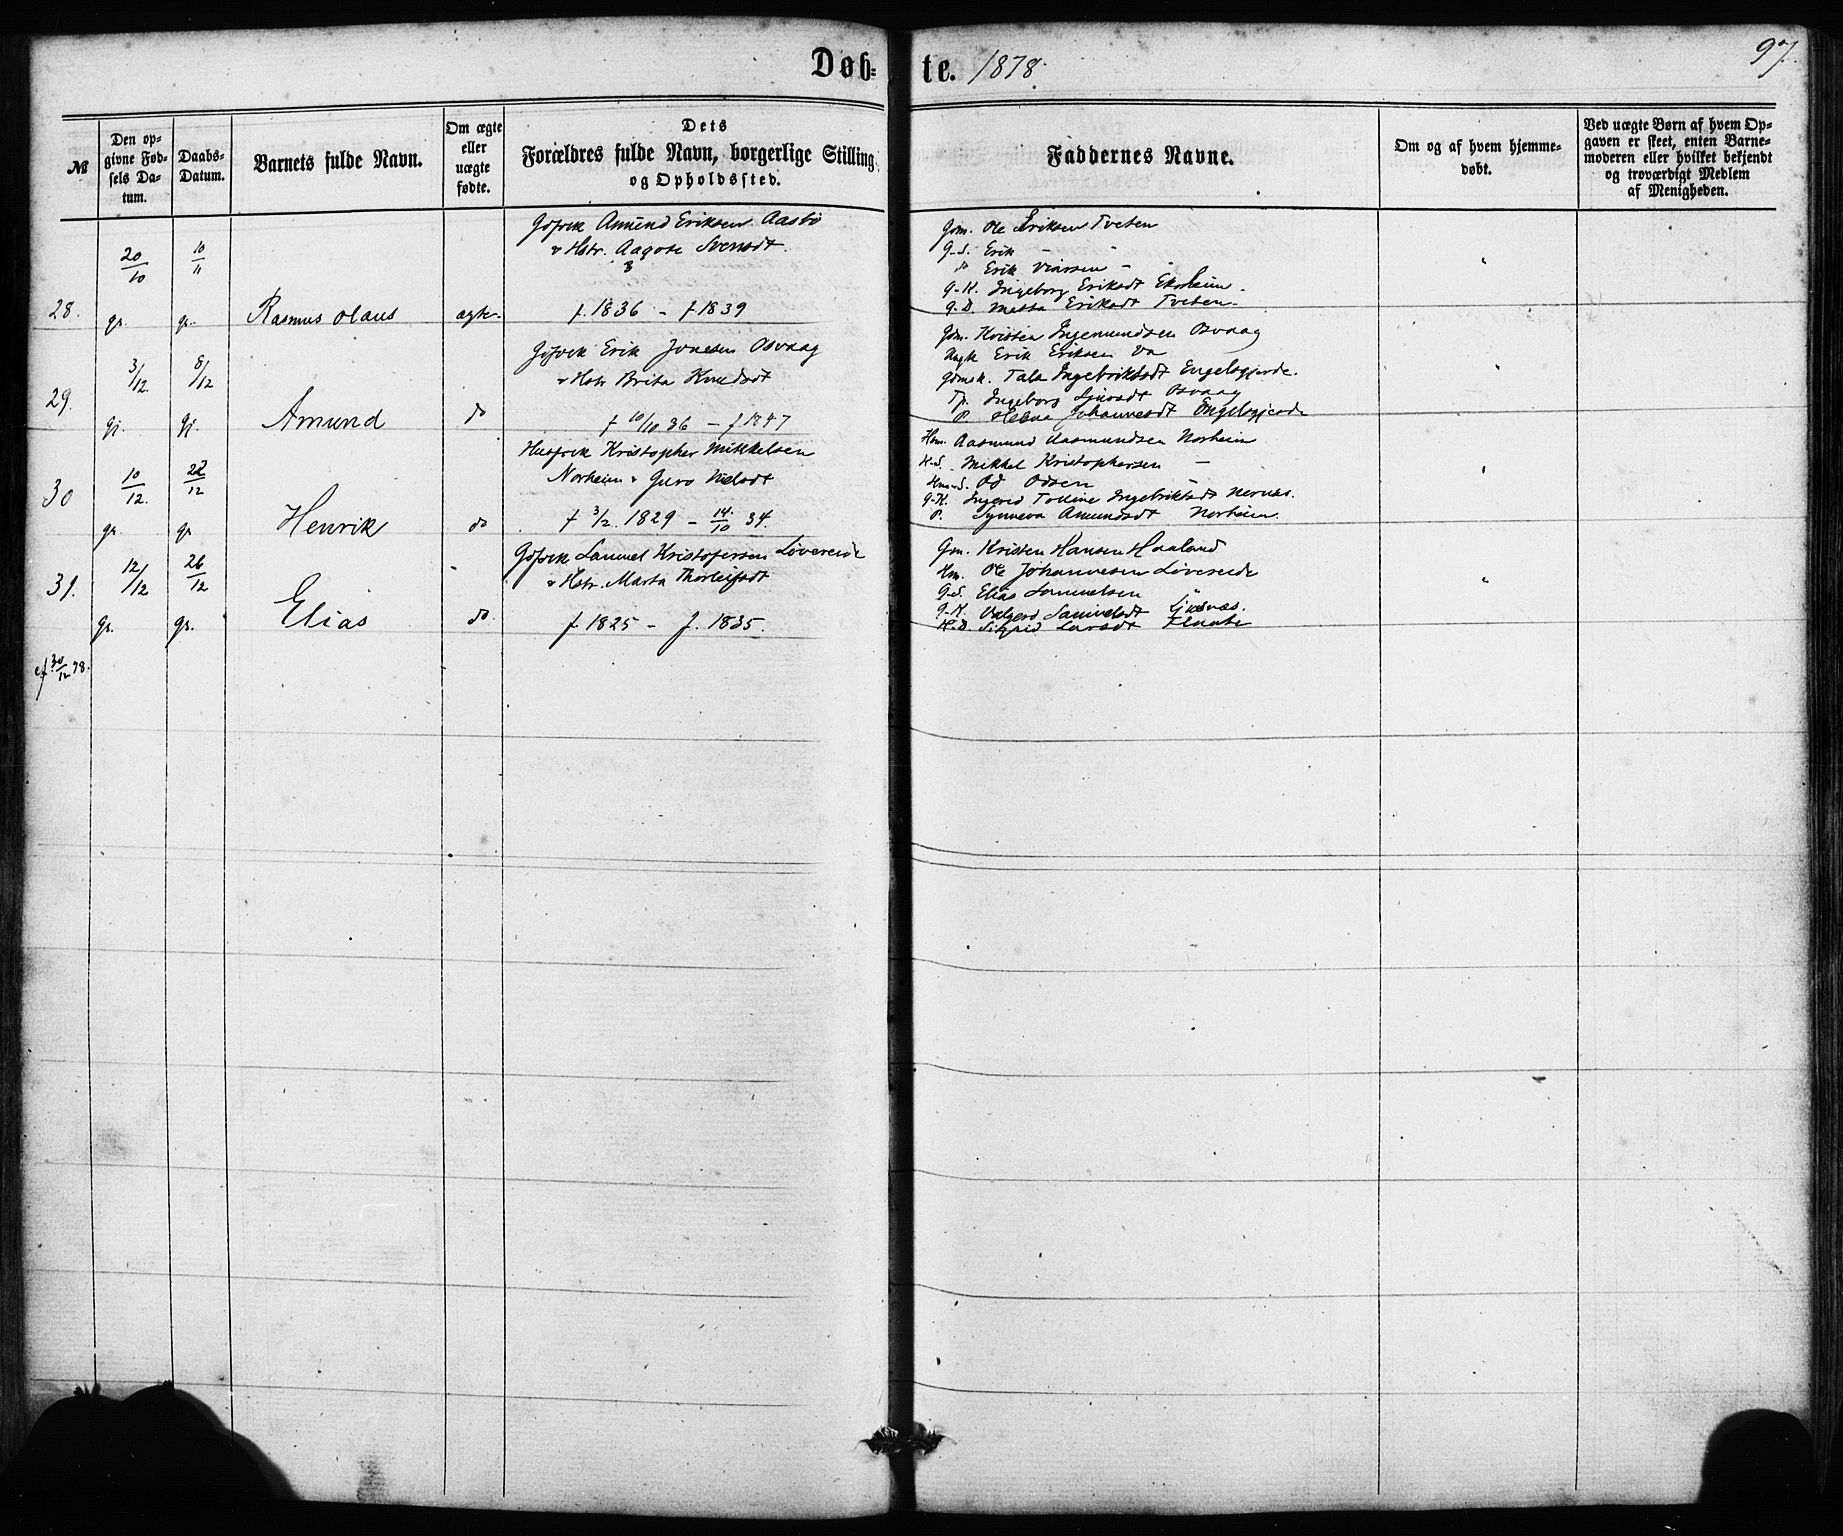 Døb-te. 1878. 97.
№
Den opgivne Fødsels Datum.
Daabs-Datum.
Barnets fulde Navn.
Om ægte eller uægte fødte.
Dets
Forældres fulde Navn, borgerlige Stilling
og Opholdssted.
Faddernes Navne.
Om og af hvem hjemme-
døbt.
Ved uægte Børn af hvem Op-
gaven er skeet, enten Barne-
moderen eller hvilket bekjendt
og troværdigt Medlem
af Menigheden.
28.
20/10
10/11
gr. gr.
Rasmus Olaus
ægte
Amund Eriksen Aasbø
& Hstr. Aagote Svensdt.
f. 1836 - f 1839
Gm. Ole Eriksen Tveten
G-S. Erik -
do Erik -
G-K. Ingeborg Eriksdt Eksheim.
G-D. Marta Eriksdt Tveten
29.
3/12
8/12
Amund
do
Erik Jonesen Osvaag
& Hstr Brita Knudsdt
f 10/10 36 - f 1847
Gm. Kristen Ingemundsen Osvaag
Ungk Erik Eriksen
Gmsk. Tala Ingebriktsdt Engelsgjerde.
Ingeborg Sjursdt Osvaag
P. Helena Johannesdt Engelsgjerde
30
10/12.
22/12
gr. gr
Henrik
do
Kristopher Mikkelsen
Norheim & Guro Nilsdt
f 3/2. 1829 - 14./10 34.
Hm. Aasmund Aasmundsen Norheim
H-S. Mikkel Kristophersen -
Od Odsen -
G-K. Ingerid Tolline Ingebriktsdt
P. Synneva Amundsdt Norheim.
31.
12/12
26/12
gr. gr.
Elias
do.
Samuel Kristofersen Løvereide
& Hstr. Marta Thorleifsdt
f 1825 - f. 1835.
Gm. Kristen Hansen Haaland
Hm. Ole Johannesen Løvereide
G-S. Elias Samuelsen "
G-K. Valgerd Samuelsdt
H-D. Sigrid Larsdt Flaate
30/12 78.